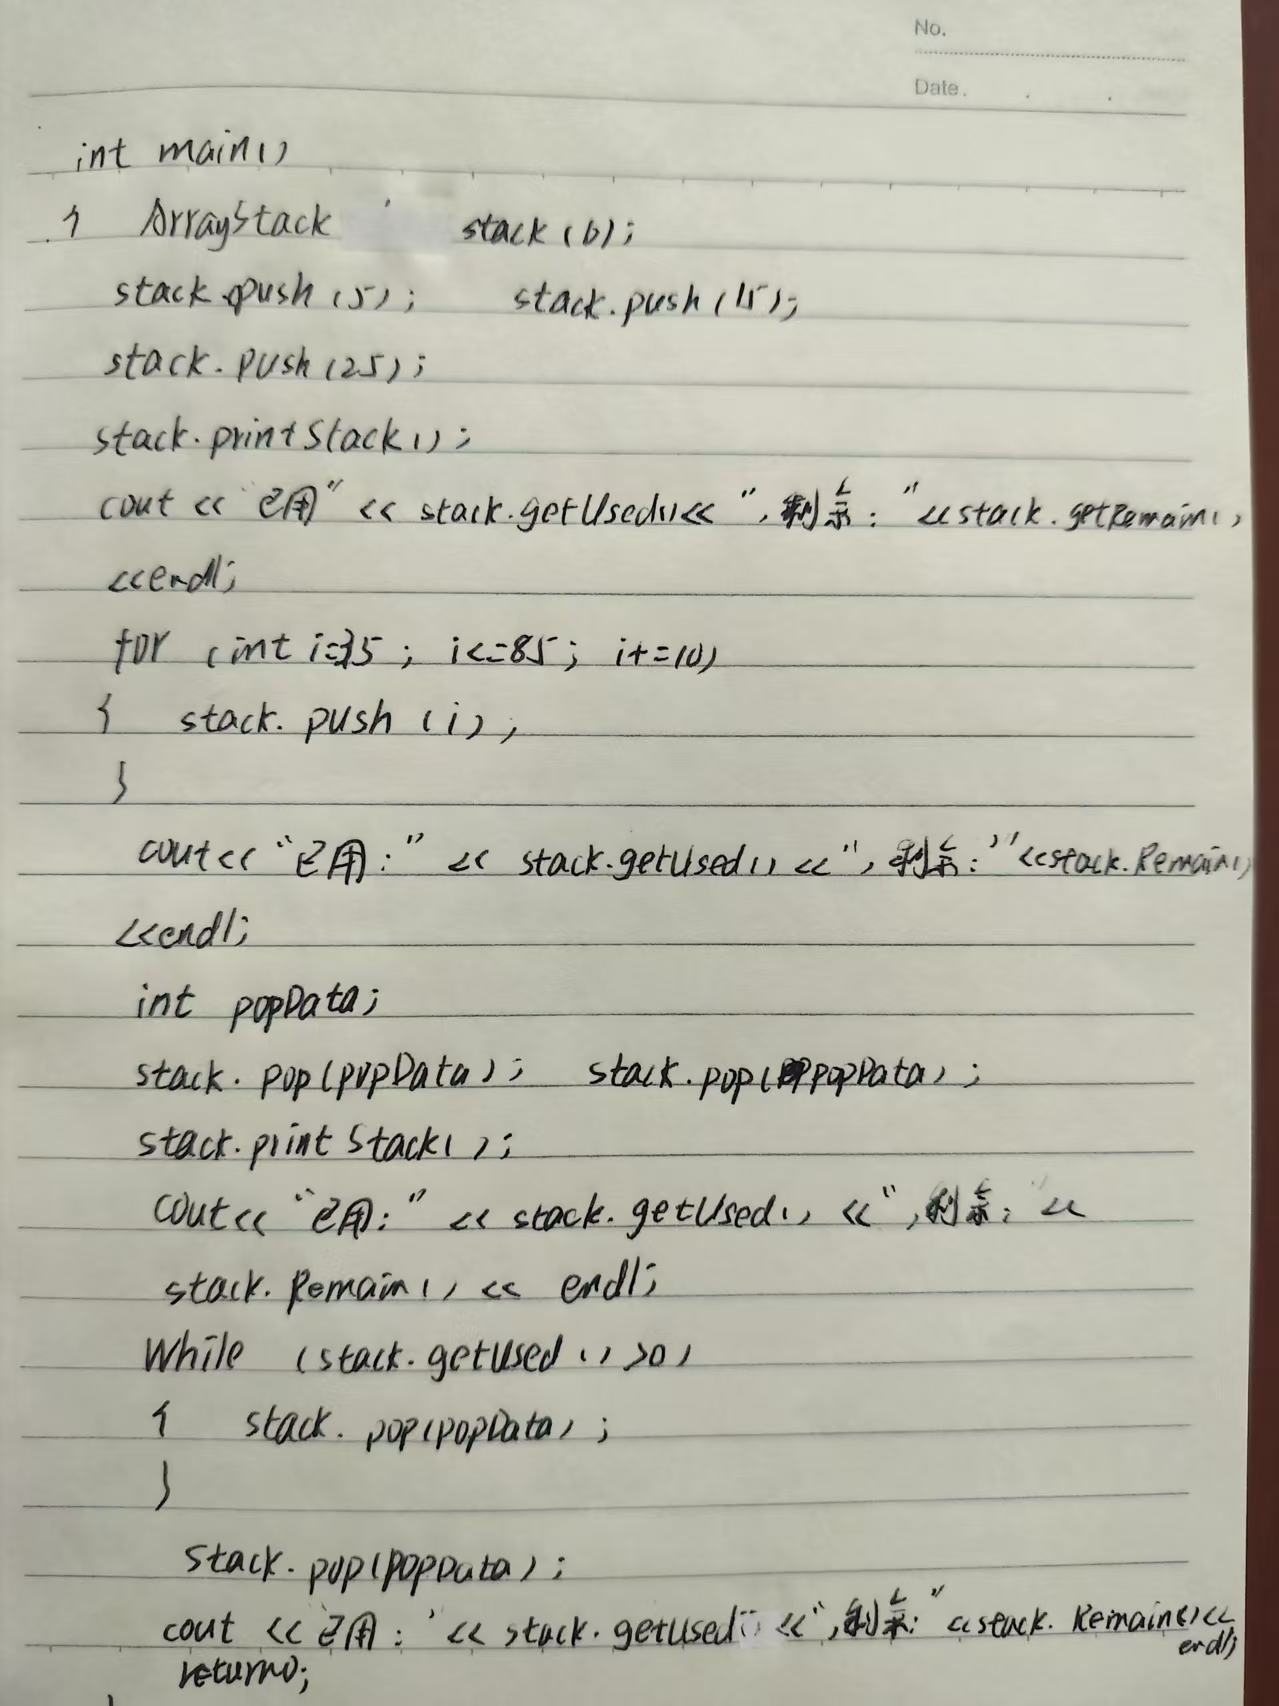 No.
Date.
int main()
{ ArrayStack stack(6);
stack.push(5); stack.push(15);
stack.push(25);
stack.printStack();
cout << "已用" << stack.getUsed()<< ",剩余:"<<stack.getRemain()
<<endl;
for (int i=35; i<=85; i+=10)
{ stack.push(i);
}
cout<< "已用:" << stack.getUsed() <<",剩余:"<<stack.Remain()
<<endl;
int popData;
stack.pop(popData); stack.pop(popData);
stack.printStack();
cout<< "已用:" << stack.getUsed() <<",剩余:"<<
stack.Remain() << endl;
While (stack.getUsed()>0)
{ stack.pop(popData);
}
stack.pop(popData);
cout << 已用:' << stack.getUsed() <<",剩余:"<<stack.Remain()<<
endl;
return0;
}